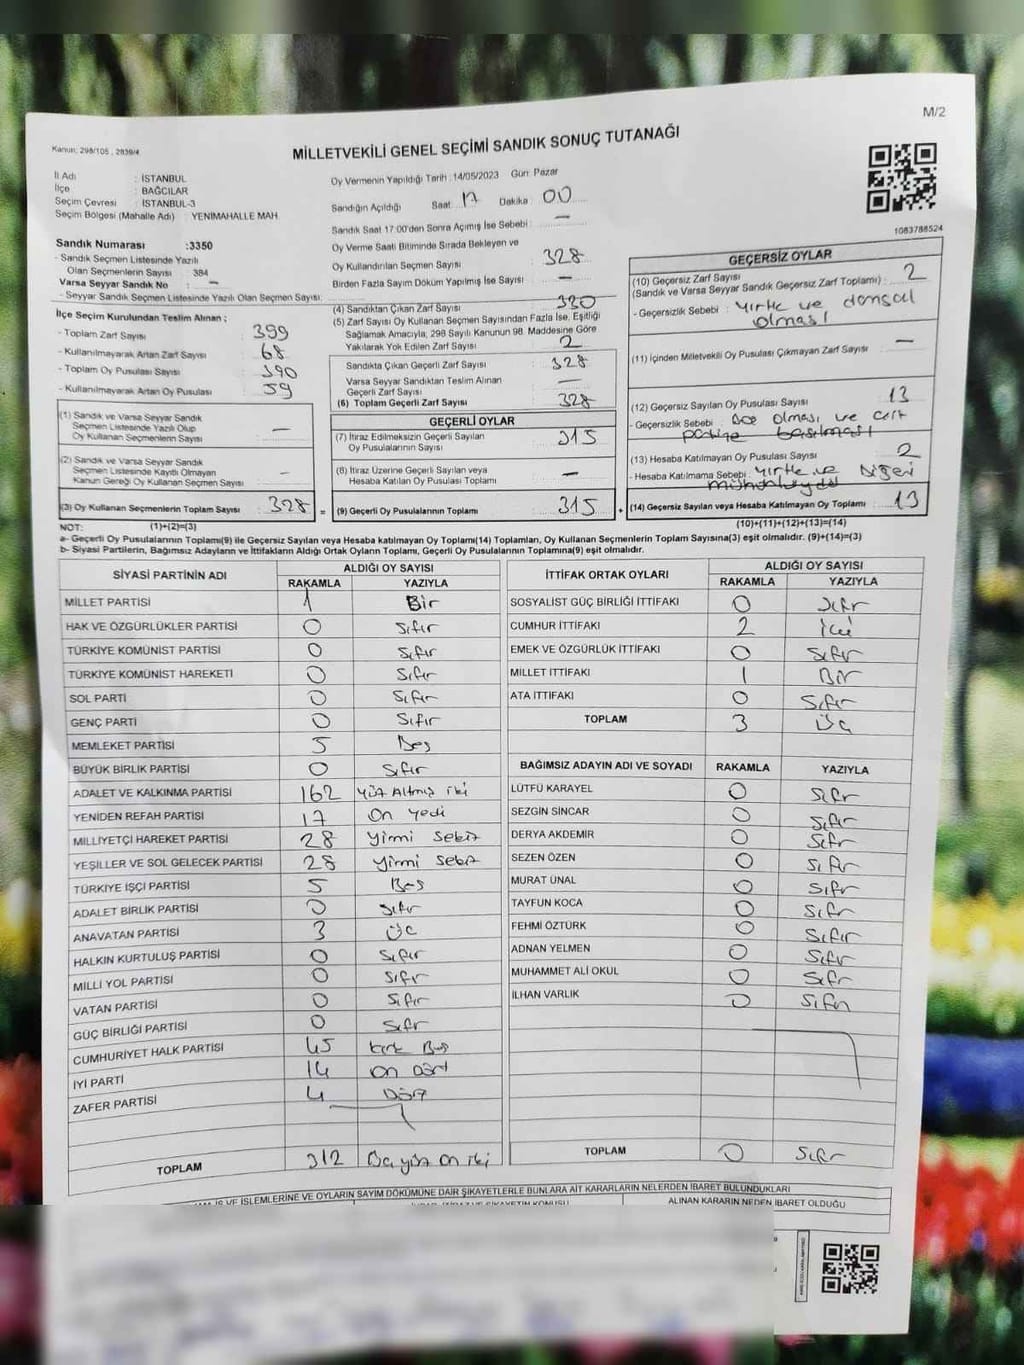 M/2
Kanun: 298/105 , 2839/4
MİLLETVEKİLİ GENEL SEÇİMİ SANDIK SONUÇ TUTANAĞI
İl Adı : İSTANBUL
İlçe : BAĞCILAR
Seçim Çevresi : İSTANBUL-3
Seçim Bölgesi (Mahalle Adı) : YENİMAHALLE MAH.
Sandık Numarası :3350
- Sandık Seçmen Listesinde Yazılı
Olan Seçmenlerin Sayısı : 384
Varsa Seyyar Sandık No : —
- Seyyar Sandık Seçmen Listesinde Yazılı Olan Seçmen Sayısı:
İlçe Seçim Kurulundan Teslim Alınan ;
- Toplam Zarf Sayısı : 399
- Kullanılmayarak Artan Zarf Sayısı : 68
- Toplam Oy Pusulası Sayısı : 390
- Kullanılmayarak Artan Oy Pusulası : 59
(1) Sandık ve Varsa Seyyar Sandık
Seçmen Listesinde Yazılı Olup
Oy Kullanan Seçmenlerin Sayısı : —
(2) Sandık ve Varsa Seyyar Sandık
Seçmen Listesinde Kayıtlı Olmayan
Kanun Gereği Oy Kullanan Seçmen Sayısı: —
(3) Oy Kullanan Seçmenlerin Toplam Sayısı : 328 =
Oy Vermenin Yapıldığı Tarih : 14/05/2023 Gün: Pazar
Sandığın Açıldığı Saat: 17 Dakika : 00
Sandık Saat 17:00'den Sonra Açılmış İse Sebebi : —
Oy Verme Saati Bitiminde Sırada Bekleyen ve
Oy Kullandırılan Seçmen Sayısı : 328
Birden Fazla Sayım Döküm Yapılmış İse Sayısı : —
(4) Sandıktan Çıkan Zarf Sayısı : 330
(5) Zarf Sayısı Oy Kullanan Seçmen Sayısından Fazla İse, Eşitliği
Sağlamak Amacıyla, 298 Sayılı Kanunun 98. Maddesine Göre
Yakılarak Yok Edilen Zarf Sayısı : 2
Sandıkta Çıkan Geçerli Zarf Sayısı : 328
Varsa Seyyar Sandıktan Teslim Alınan
Geçerli Zarf Sayısı : —
(6) Toplam Geçerli Zarf Sayısı : 328
GEÇERLİ OYLAR
(7) İtiraz Edilmeksizin Geçerli Sayılan
Oy Pusulasının Sayısı : 315
(8) İtiraz Üzerine Geçerli Sayılan veya
Hesaba Katılan Oy Pusulasının Toplamı : —
(9) Geçerli Oy Pusulalarının Toplamı : 315 +
1083788524
GEÇERSİZ OYLAR
(10) Geçersiz Zarf Sayısı : 2
(Sandık ve Varsa Seyyar Sandık Geçersiz Zarf Toplamı) :
- Geçersizlik Sebebi : yırtık ve
olması
(11) İçinden Milletvekili Oy Pusulası Çıkmayan Zarf Sayısı : —
(12) Geçersiz Sayılan Oy Pusulası Sayısı : 13
- Geçersizlik Sebebi : Boş olması ve çift
partiye basılması
(13) Hesaba Katılmayan Oy Pusulası Sayısı : 2
- Hesaba Katılmama Sebebi : yırtık ve Diğeri
(14) Geçersiz Sayılan veya Hesaba Katılmayan Oy Toplamı : 13
NOT: (1)+(2)=(3)
(10)+(11)+(12)+(13)=(14)
a- Geçerli Oy Pusulalarının Toplamı(9) ile Geçersiz Sayılan veya Hesaba katılmayan Oy Toplamı(14) Toplamları, Oy Kullanan Seçmenlerin Toplam Sayısına(3) eşit olmalıdır. (9)+(14)=(3)
b- Siyasi Partilerin, Bağımsız Adayların ve İttifakların Aldığı Ortak Oyların Toplamı, Geçerli Oy Pusulalarının Toplamına(9) eşit olmalıdır.
SİYASİ PARTİNİN ADI ALDIĞI OY SAYISI
RAKAMLA YAZIYLA
MİLLET PARTİSİ 1 Bir
HAK VE ÖZGÜRLÜKLER PARTİSİ 0 Sıfır
TÜRKİYE KOMÜNİST PARTİSİ 0 Sıfır
TÜRKİYE KOMÜNİST HAREKETİ 0 Sıfır
SOL PARTİ 0 Sıfır
GENÇ PARTİ 0 Sıfır
MEMLEKET PARTİSİ 5 Beş
BÜYÜK BİRLİK PARTİSİ 0 Sıfır
ADALET VE KALKINMA PARTİSİ 162 Yüz Altmış iki
YENİDEN REFAH PARTİSİ 17 On Yedi
MİLLİYETÇİ HAREKET PARTİSİ 28 Yirmi Sekiz
YEŞİLLER VE SOL GELECEK PARTİSİ 28 Yirmi Sekiz
TÜRKİYE İŞÇİ PARTİSİ 5 Beş
ADALET BİRLİK PARTİSİ 0 Sıfır
ANAVATAN PARTİSİ 3 Üç
HALKIN KURTULUŞ PARTİSİ 0 Sıfır
MİLLİ YOL PARTİSİ 0 Sıfır
VATAN PARTİSİ 0 Sıfır
GÜÇ BİRLİĞİ PARTİSİ 0 Sıfır
CUMHURİYET HALK PARTİSİ 45 Kırk Beş
İYİ PARTİ 14 On Dört
ZAFER PARTİSİ 4 Dört
TOPLAM 312 Üç yüz On iki
İTTİFAK ORTAK OYLARI ALDIĞI OY SAYISI
RAKAMLA YAZIYLA
SOSYALİST GÜÇ BİRLİĞİ İTTİFAKI 0 Sıfır
CUMHUR İTTİFAKI 2 İki
EMEK VE ÖZGÜRLÜK İTTİFAKI 0 Sıfır
MİLLET İTTİFAKI 1 Bir
ATA İTTİFAKI 0 Sıfır
TOPLAM 3 Üç
BAĞIMSIZ ADAYIN ADI VE SOYADI RAKAMLA YAZIYLA
LÜTFÜ KARAYEL 0 Sıfır
SEZGİN SİNCAR 0 Sıfır
DERYA AKDEMİR 0 Sıfır
SEZEN ÖZEN 0 Sıfır
MURAT ÜNAL 0 Sıfır
TAYFUN KOCA 0 Sıfır
FEHMİ ÖZTÜRK 0 Sıfır
ADNAN YELMEN 0 Sıfır
MUHAMMET ALİ OKUL 0 Sıfır
İLHAN VARLIK 0 Sıfır
TOPLAM 0 Sıfır
İŞ VE İŞLEMLERİNE VE OYLARIN SAYIM DÖKÜMÜNE DAİR ŞİKAYETLERLE BUNLARA AİT KARARLARIN NELERDEN İBARET BULUNDUKLARI
ALINAN KARARIN NEDEN İBARET OLDUĞU